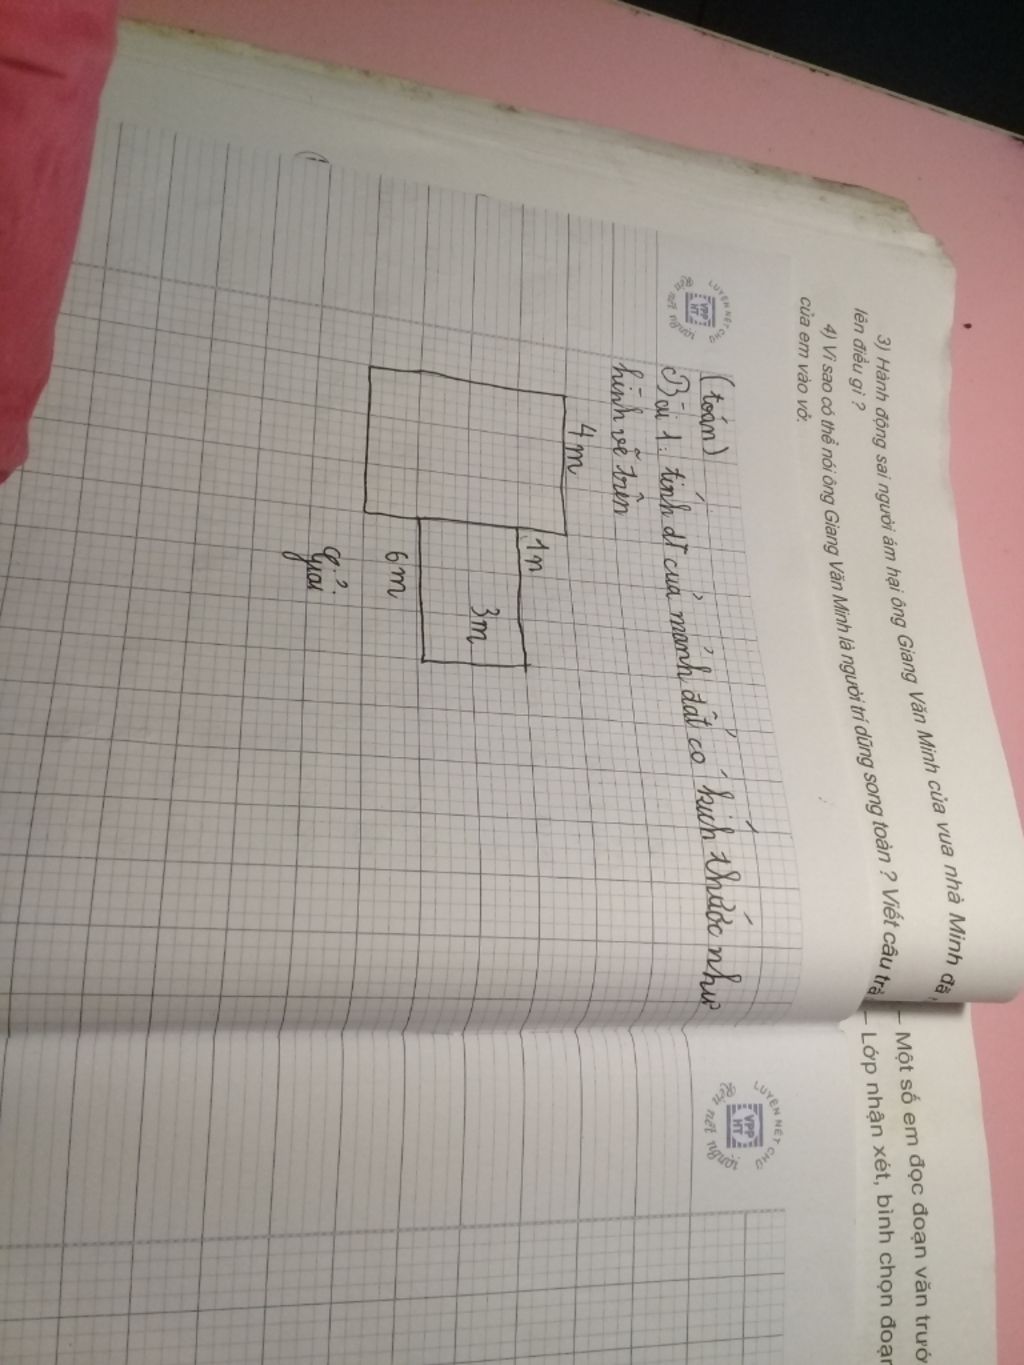 3) Hành động sai người ám hại ông Giang Văn Minh của vua nhà Minh đã
lên điều gì ?
4) Vì sao có thể nói ông Giang Văn Minh là người trí dũng song toàn ? Viết câu trả
của em vào vở.
– Một số em đọc đoạn văn trướ
– Lớp nhận xét, bình chọn đoạn
LUYỆN NÉT CHỮ
VPP
HT
RÈN NẾT NGƯỜI
LUYỆN NÉT CHỮ
VPP
HT
RÈN NẾT NGƯỜI
(toán)
Bài 1: tính dt của mảnh đất có kích thước như
hình vẽ trên
4m
1m
3m
6m
giải